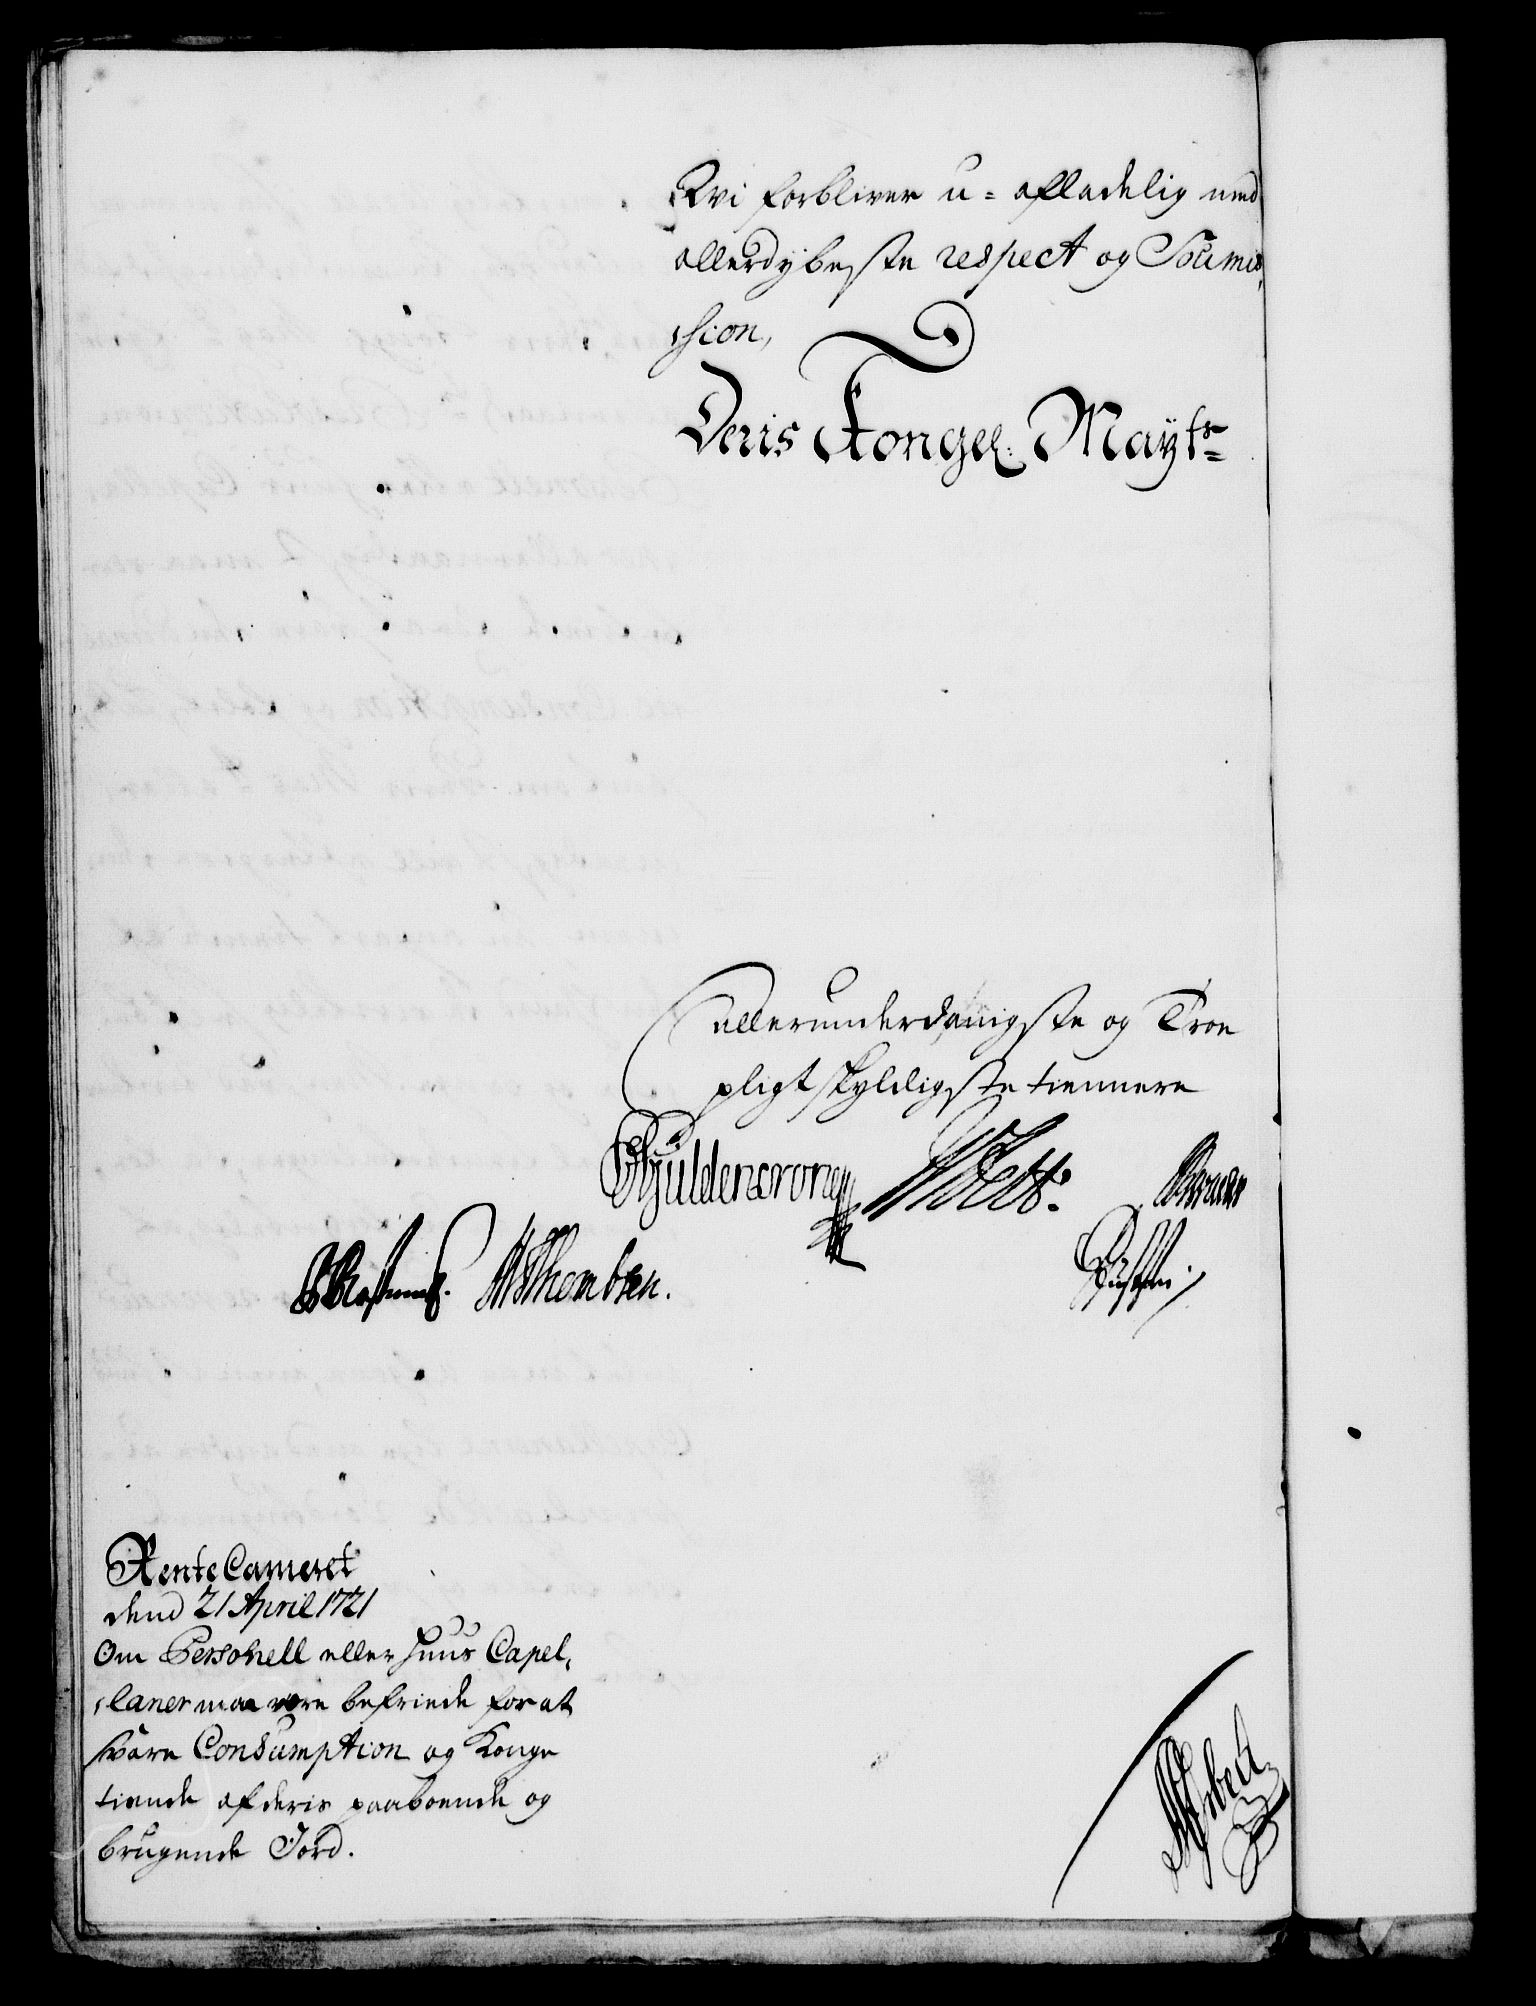 Vvi forbliver u-afladelig med
allerdybeste respect og Soumis,
sion,
Deris Kongel. Mayts
allerunderdanigste og Troe
pligtskyldigste tiennere
Gyldencrone
Thombsen.
RenteCameret
dend 21 April 1721
Om Personell eller Huus Capel,
laner maa være befriede for at
svare Consumption og Konge
tiende af deris paaboende og
brugende Jord.